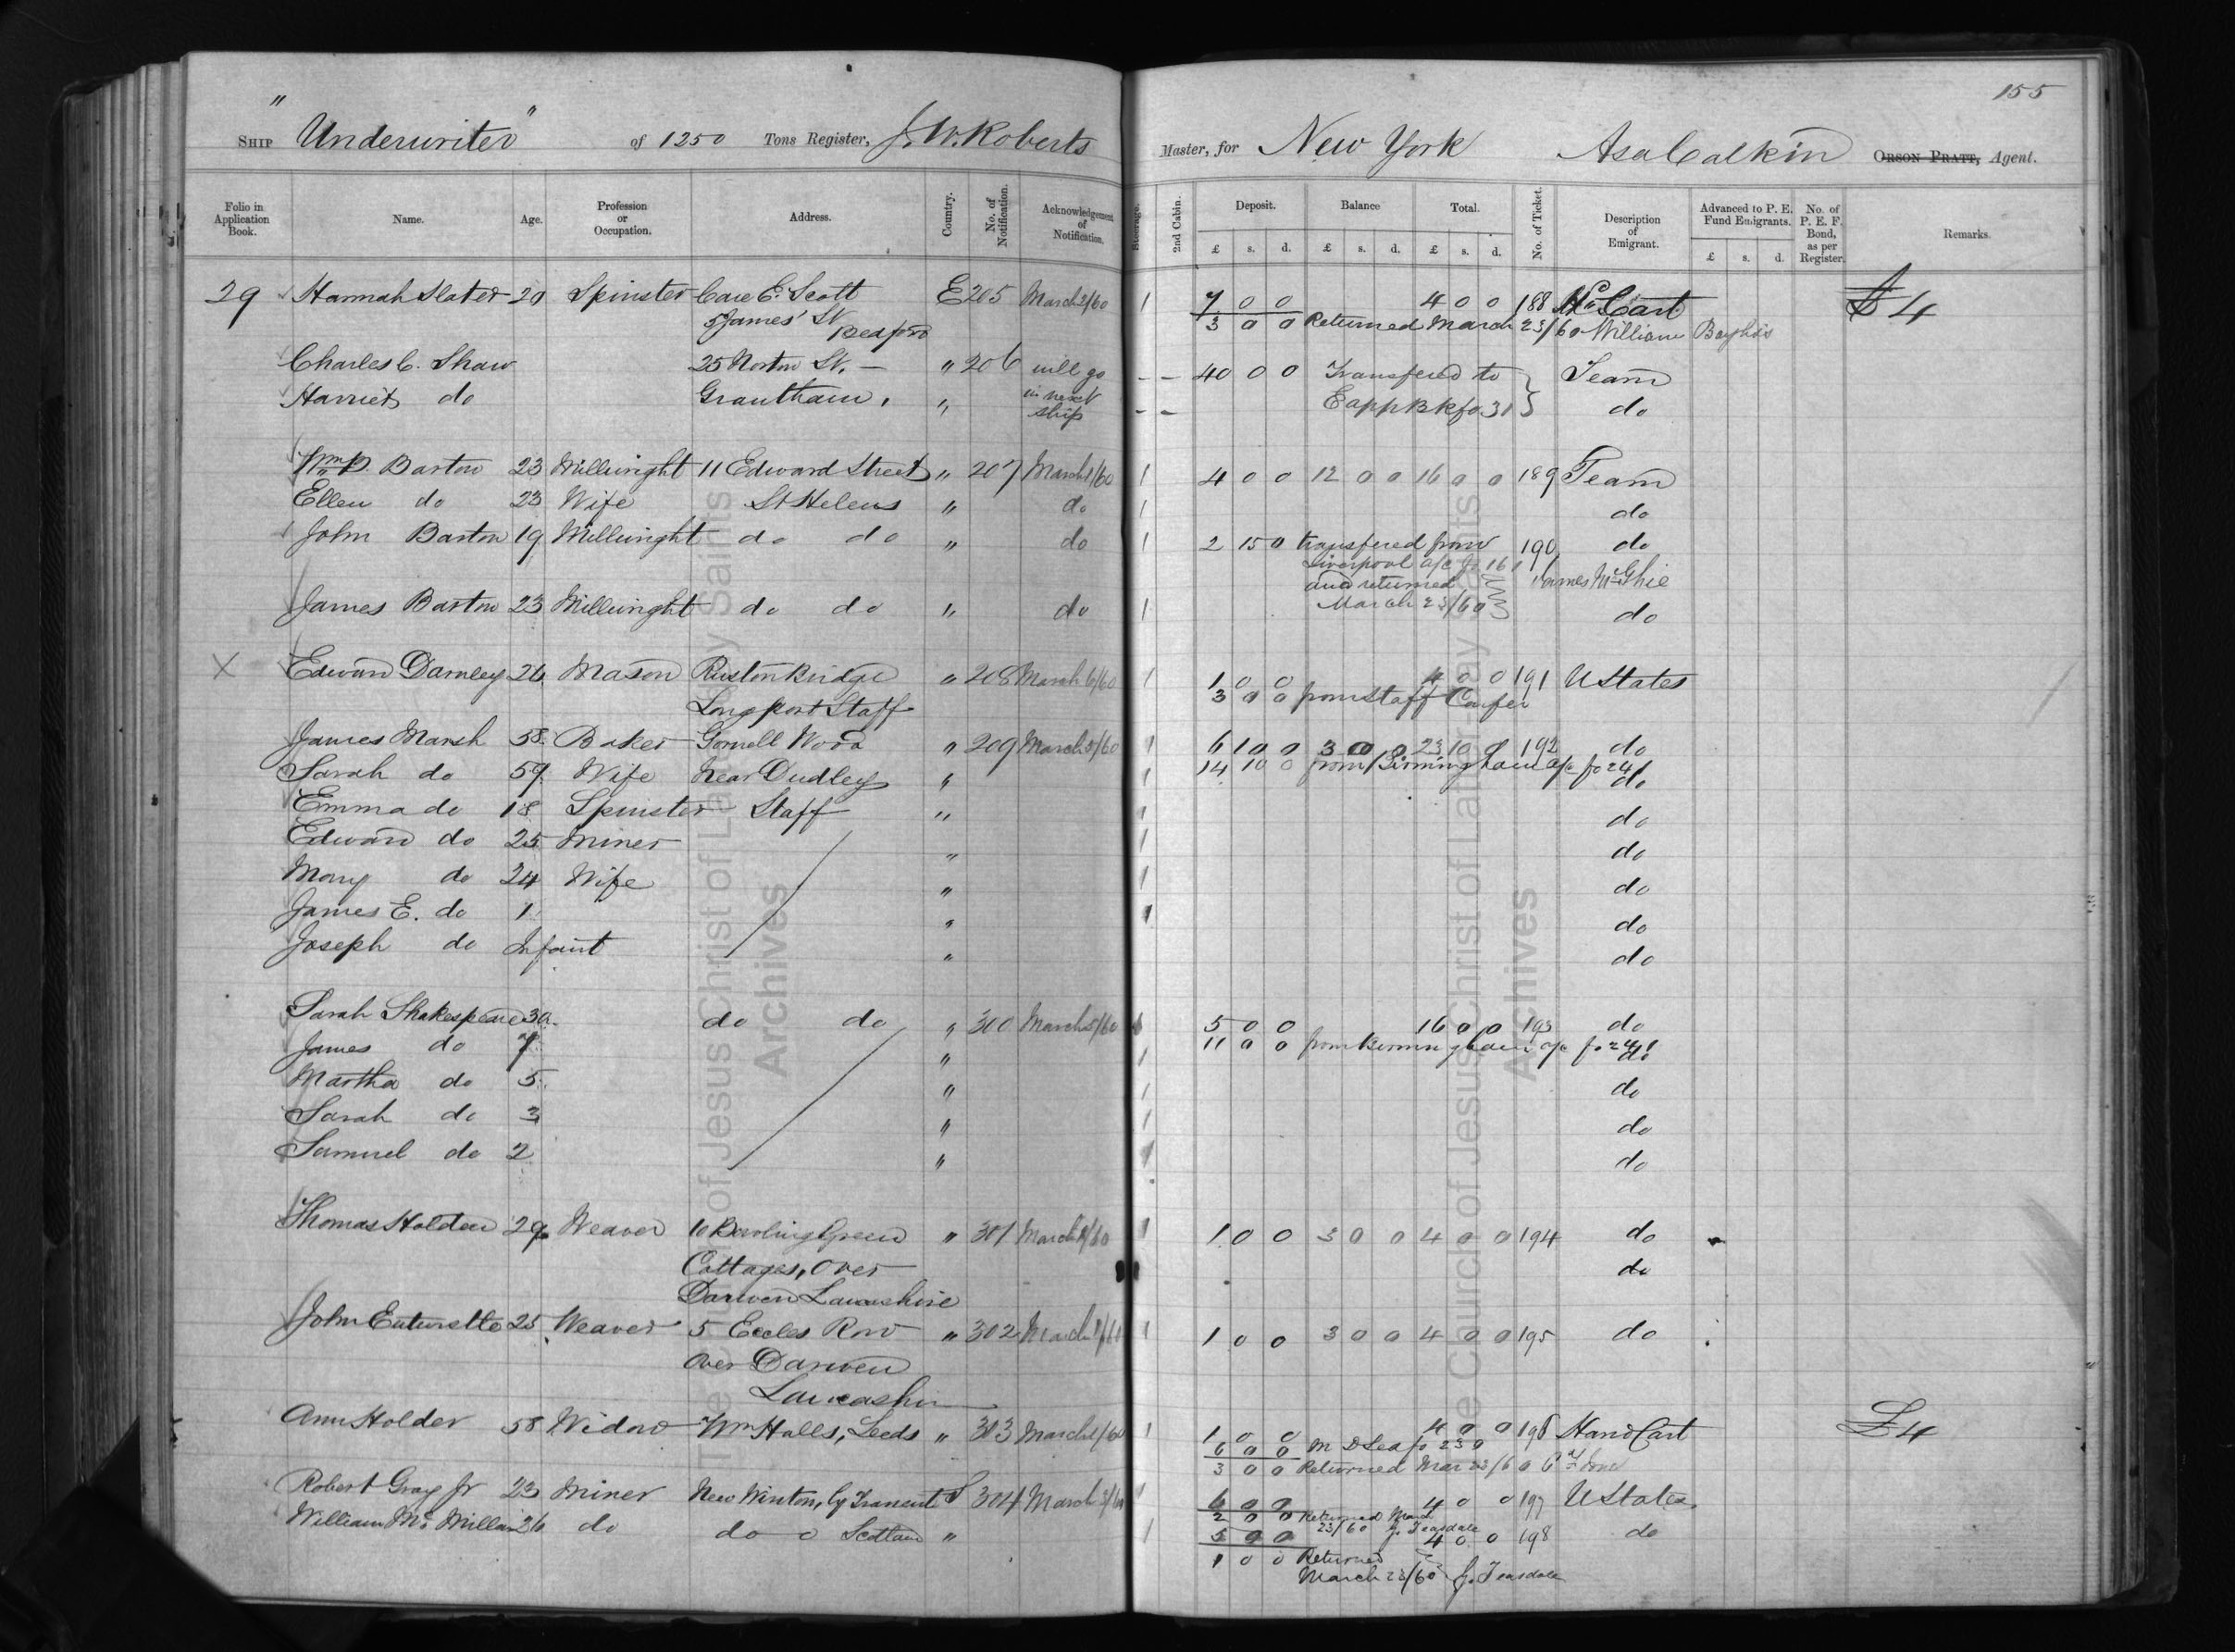 155
Ship "Underwriter" of 1250 Tons Register, J. W. Roberts Master, for New York Asa Calkin Orson Pratt, Agent.
Folio in Application Book. Name. Age. Profession or Occupation. Address. Country. No. of Notification. Acknowledgement of Notification. Steerage. 2nd Cabin. Deposit. Balance Total. No. of Ticket. Description of Emigrant. Advanced to P. E. Fund Emigrants. No. of P. E. F. Bond, as per Register. Remarks.
£ s. d. £ s. d. £ s. d. £ s. d.
29 Hannah Slater 20 Spinster Care E. Scott E 205 March 2/60 1 7 0 0 4 0 0 188 Hd Cart £4
5 James' St Bedford 3 0 0 Returned March 23/60 William
Charles C. Shaw 25 Norton St. — " 206 will go - - 40 0 0 Transfered to Team
Harriet do Grantham. " in next ship - - E app Bk fo 31 do
Wm P. Barton 23 Millwright 11 Edward Street " 207 March 1/60 1 4 0 0 12 0 0 16 0 0 189 Team
Ellen do 23 Wife St Helens " do 1 do
John Barton 19 Millwright do do " do 1 2 15 0 transfered from 190 do
Liverpool a/c fo 161
and returned James McGhie
March 23/60
James Barton 23 Millwright do do " do 1 do
X Edward Darnley 26 Mason Rustonbridge " 208 March 6/60 1 1 0 0 4 0 0 191 U States
Longport Staff 3 0 0 from Staff Confer
James Marsh 58 Baker Gornell Wood " 209 March 5/60 1 6 10 0 3 0 0 23 10 0 192 do
Sarah do 59 Wife Near Dudley " 1 14 10 0 from Birmingham a/c fo 241 do
Emma do 18 Spinster Staff " 1 do
Edward do 25 Miner " 1 do
Mary do 24 Wife " 1 do
James E. do 1 " 1 do
Joseph do Infant " do
Sarah Shakespeare 30 do do " 300 March 5/60 1 5 0 0 16 0 0 193 do
James do 7 " 1 11 0 0 from Birmingham a/c fo 241 do
Martha do 5 " 1 do
Sarah do 3 " 1 do
Samuel do 2 " 1 do
Thomas Holden 29 Weaver 10 Bowling Green " 301 March /60 1 1 0 0 3 0 0 4 0 0 194 do
Cottages, Over do
Darwen Lancashire
John 25 Weaver 5 Eccles Row " 302 March 1 1 0 0 3 0 0 4 0 0 195 do
Over Darwen
Lancashire
Ann Holder 58 Widow Wm Halls, Leeds " 303 March 1/60 1 1 0 0 4 0 0 196 Hand Cart £4
6 0 0 fo 239
3 0 0 Returned Mar 23/60
Robert Gray Jr 23 Miner New Winton, by Tranent S 304 March 3/60 1 6 0 0 4 0 0 197 U States
2 0 0 Returned March 23/60 J. Teasdale
William McMillan 26 do do o Scotland " 1 5 0 0 4 0 0 198 do
1 0 0 Returned
March 23/60 J. Teasdale
The Church of Jesus Christ of Latter-day Saints
Archives
The Church of Jesus Christ of Latter-day Saints
Archives